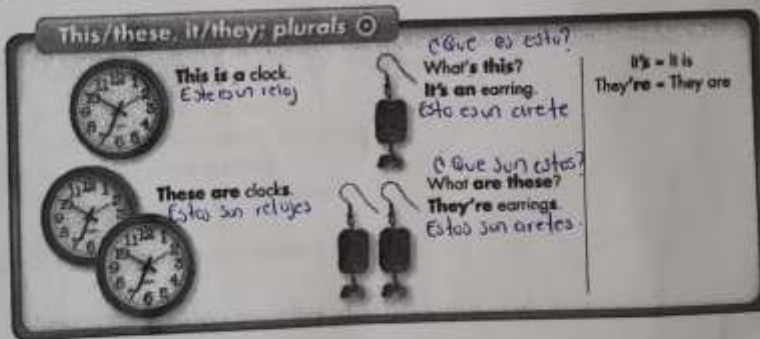 This/these, it/they; plurals
This is a clock.
Este es un reloj
¿Que es esto?
What's this?
It's an earring.
Esto es un arete
It's = It is
They're = They are
These are clocks.
Estos sun relojes
¿Que sun estos?
What are these?
They're earrings.
Estos sun aretes.